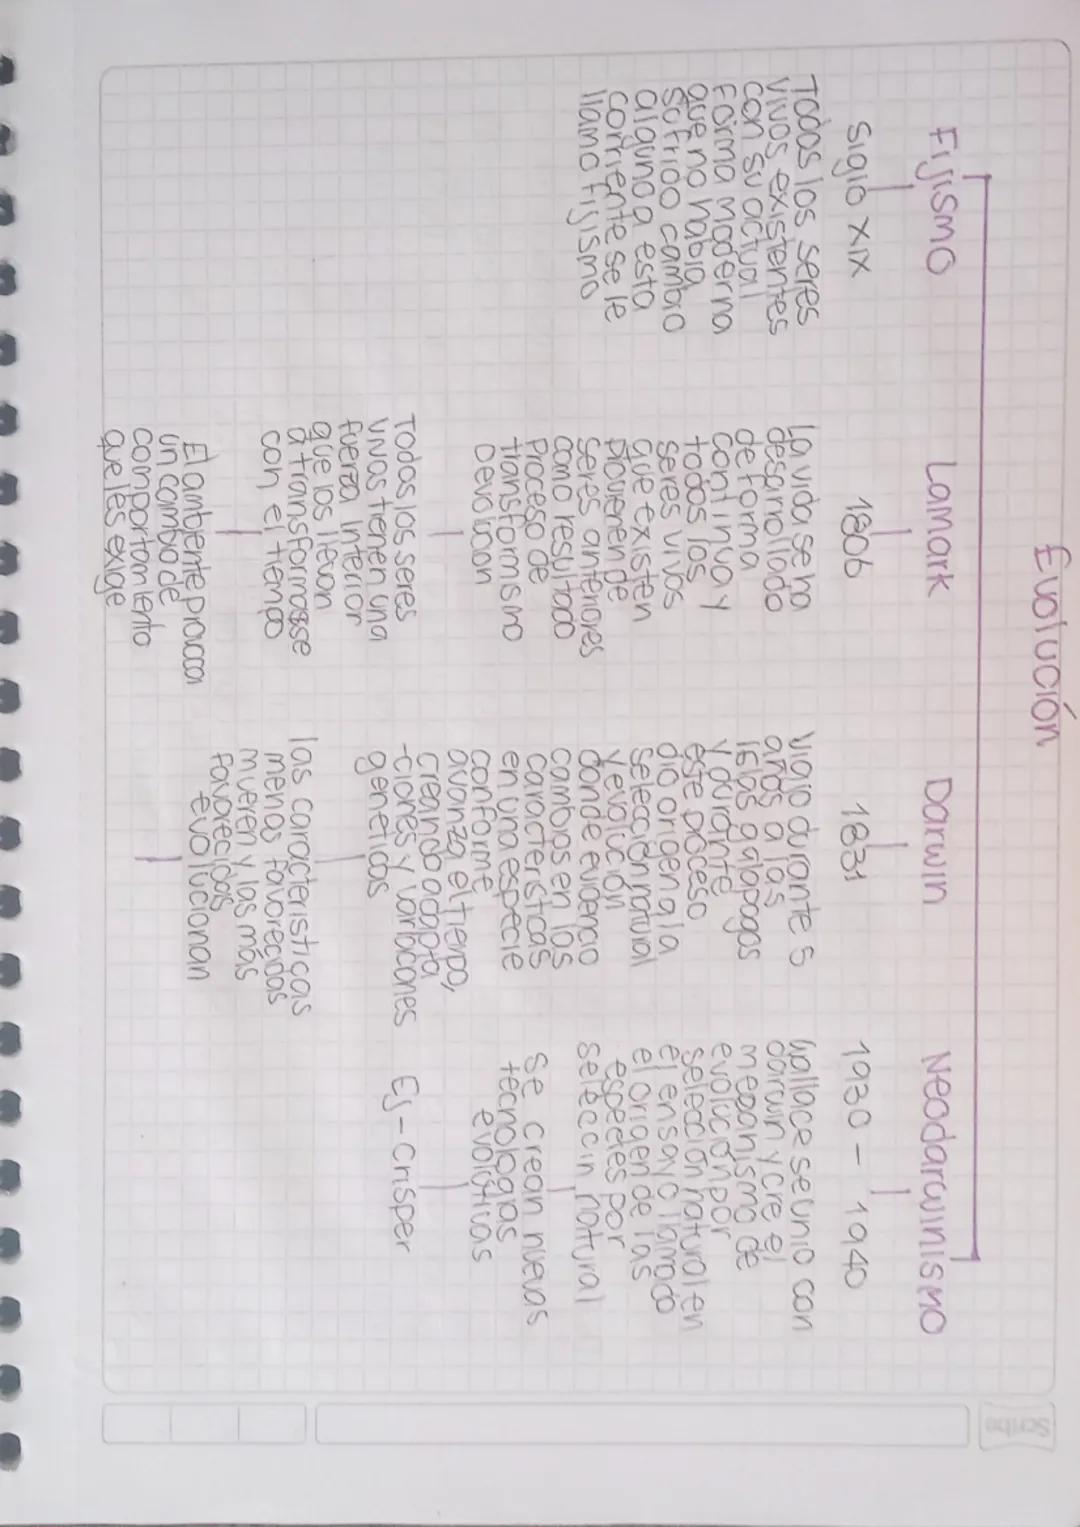 Evolución
Fijismo
Siglo XIX
Todos los seres
vivos existentes
con su actual
forma moderna
que no habia
sufrido cambio
alguno a esta
corriente se le
llamo fijismo
Lamark
1806
La vida se ha
desarrollado
de forma
continua y
todos los
seres vivos
que existen
provienen de
seres anteriores
como resultado
proceso de
transformismo
Devolucion
Todos los seres
vivos tienen una
fuerza interior
que los llevan
a transformasse
con el tiempo
El ambiente provoca
un cambio de
comportamiento
que les exige
Darwin
1831
viajo durante 5
años a las
islas galapagos
y durante
este poceso
dio origen a la
selección natural
y evolución
donde evidencio
cambios en los
caracteristicas
en una especie
conforme
avanza el tiempo,
creando adapta
-ciones y variacones
geneticas
las caracteristicas
menos favorecidas
mueren y las más
favorecidas
evolucionan
Neodarwinismo
1930 - 1940
Wallace se unio con
darwin y cre el
meganismo de
evolución por
selección natural en
el ensayo llamado
el origen de las
especies por
seleccin natural
Se crean nuevas
tecnologias
evolutivas
Ej - Crisper
Scribe